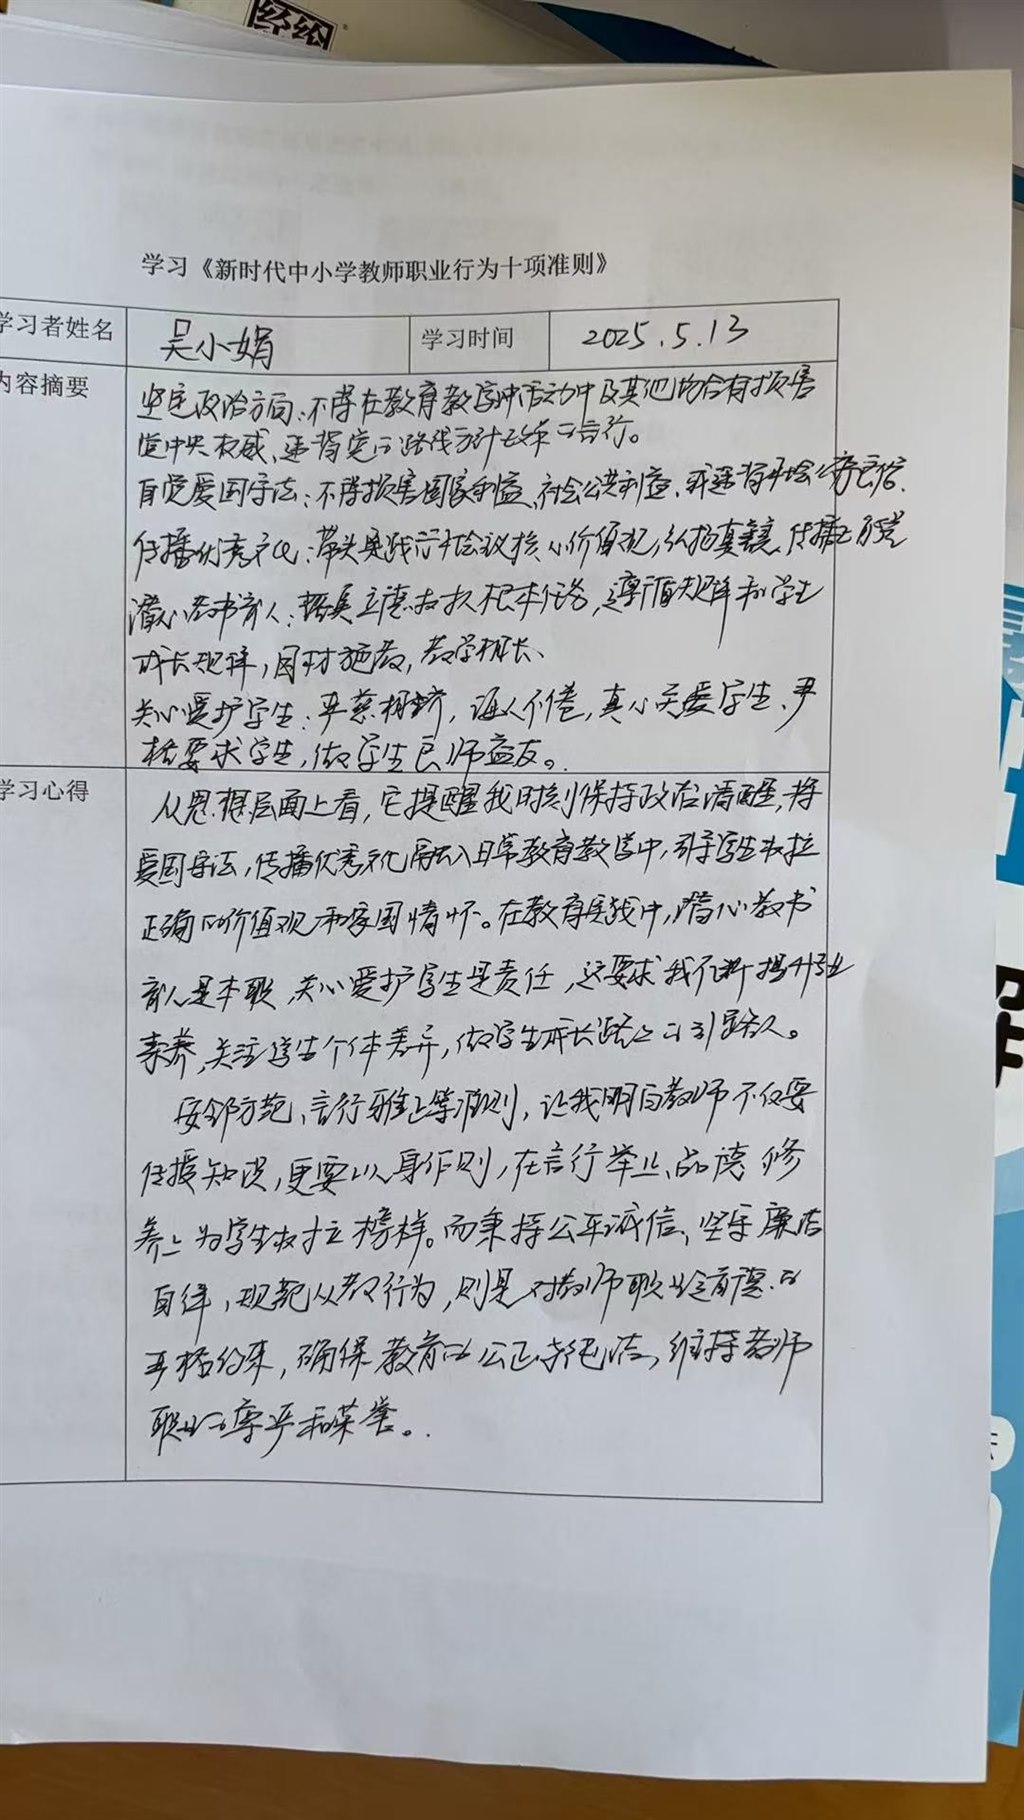 经纶
学习《新时代中小学教师职业行为十项准则》
学习者姓名 吴小娟 学习时间 2025.5.13
内容摘要
坚定政治方向:不得在教育教学活动中及其他场合有损害
党中央权威、违背党的路线方针政策的言行。
自觉爱国守法:不得损害国家利益、社会公共利益,或违背社会公序良俗.
传播优秀文化:带头践行社会主义核心价值观,弘扬真善美,传播正能量
潜心教书育人:落实立德树人根本任务,遵循规律和学生
成长规律,因材施教,教学相长、
关心爱护学生:严慈相济,诲人不倦,真心关爱学生、严
格要求学生,做学生良师益友。
学习心得
从思想层面上看,它提醒我时刻保持政治清醒,将
爱国守法,传播优秀文化融入日常教育教学中,引导学生树立
正确的价值观和家国情怀。在教育实践中,潜心教书
育人是本职,关心爱护学生是责任,这要求我不断提升专业
素养,关注学生个体差异,做学生成长路上的引路人。
安全防范、言行雅正等准则,让我明白教师不仅要
传授知识,更要以身作则,在言行举止、品德修
养上为学生树立榜样。而秉持公平诚信、坚守廉洁
自律,规范从教行为,则是对教师职业道德的
严格约束,确保教育的公正与纯洁,维持教师
职业的尊严和荣誉。